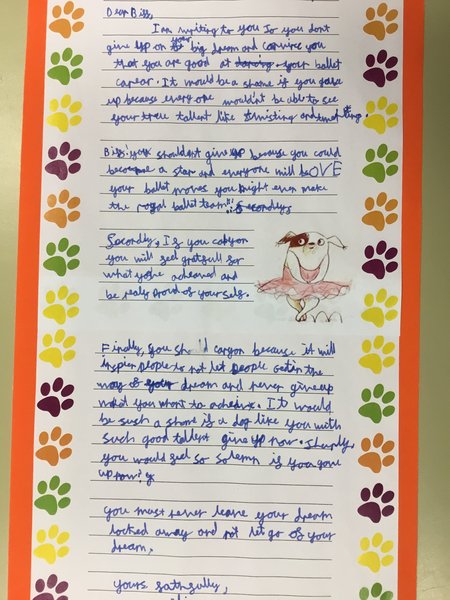 Dear Biff,
I am writing to you so you dont
give up on your big dream and convince you
that you are good at dancing your ballet
carear. It would be a shame if you gave
up because everyone wouldn't be able to see
your true tallent like twisting and
Biff! you shouldn't give up because you could
become a star and everyone will LOVE
your ballet moves you might even make
the royal ballet team!! Secondly,
Secondly, If you carryon
you will feel gratfull for
what you've acheaved and
be realy proud of yourself.
Finally, you should carryon because it will
inspier people to not let people get in the
way of your dream and never give up
what you want to acheive. It would
be such a shame if a dog like you with
such good tallent give up now.
you would feel so solemn if you gave
up now!
you must never leave your dream
locked away and not let go of your
dream.
Yours faithfully,